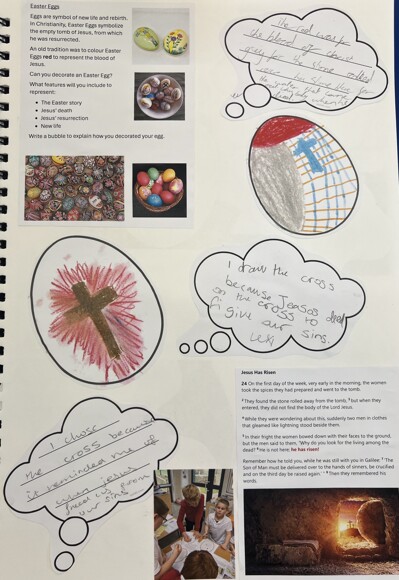 Easter Eggs
Eggs are symbol of new life and rebirth.
In Christianity, Easter Eggs symbolize
the empty tomb of Jesus, from which
he was resurrected.
An old tradition was to colour Easter
Eggs red to represent the blood of
Jesus.
Can you decorate an Easter Egg?
What features will you include to
represent:
• The Easter story
• Jesus' death
• Jesus' resurrection
• New life
Write a bubble to explain how you decorated your egg.
The red was for
the blood of
the stone rolled
I draw the cross
because Jeasas died
on the cross to
our sins.
I chose
the cross because
it reminded me of
our sins
Jesus Has Risen
24 On the first day of the week, very early in the morning, the women
took the spices they had prepared and went to the tomb.
2 They found the stone rolled away from the tomb, 3 but when they
entered, they did not find the body of the Lord Jesus.
4 While they were wondering about this, suddenly two men in clothes
that gleamed like lightning stood beside them.
5 In their fright the women bowed down with their faces to the ground,
but the men said to them, "Why do you look for the living among the
dead? 6 He is not here; he has risen!
Remember how he told you, while he was still with you in Galilee: 7 'The
Son of Man must be delivered over to the hands of sinners, be crucified
and on the third day be raised again.' " 8 Then they remembered his
words.